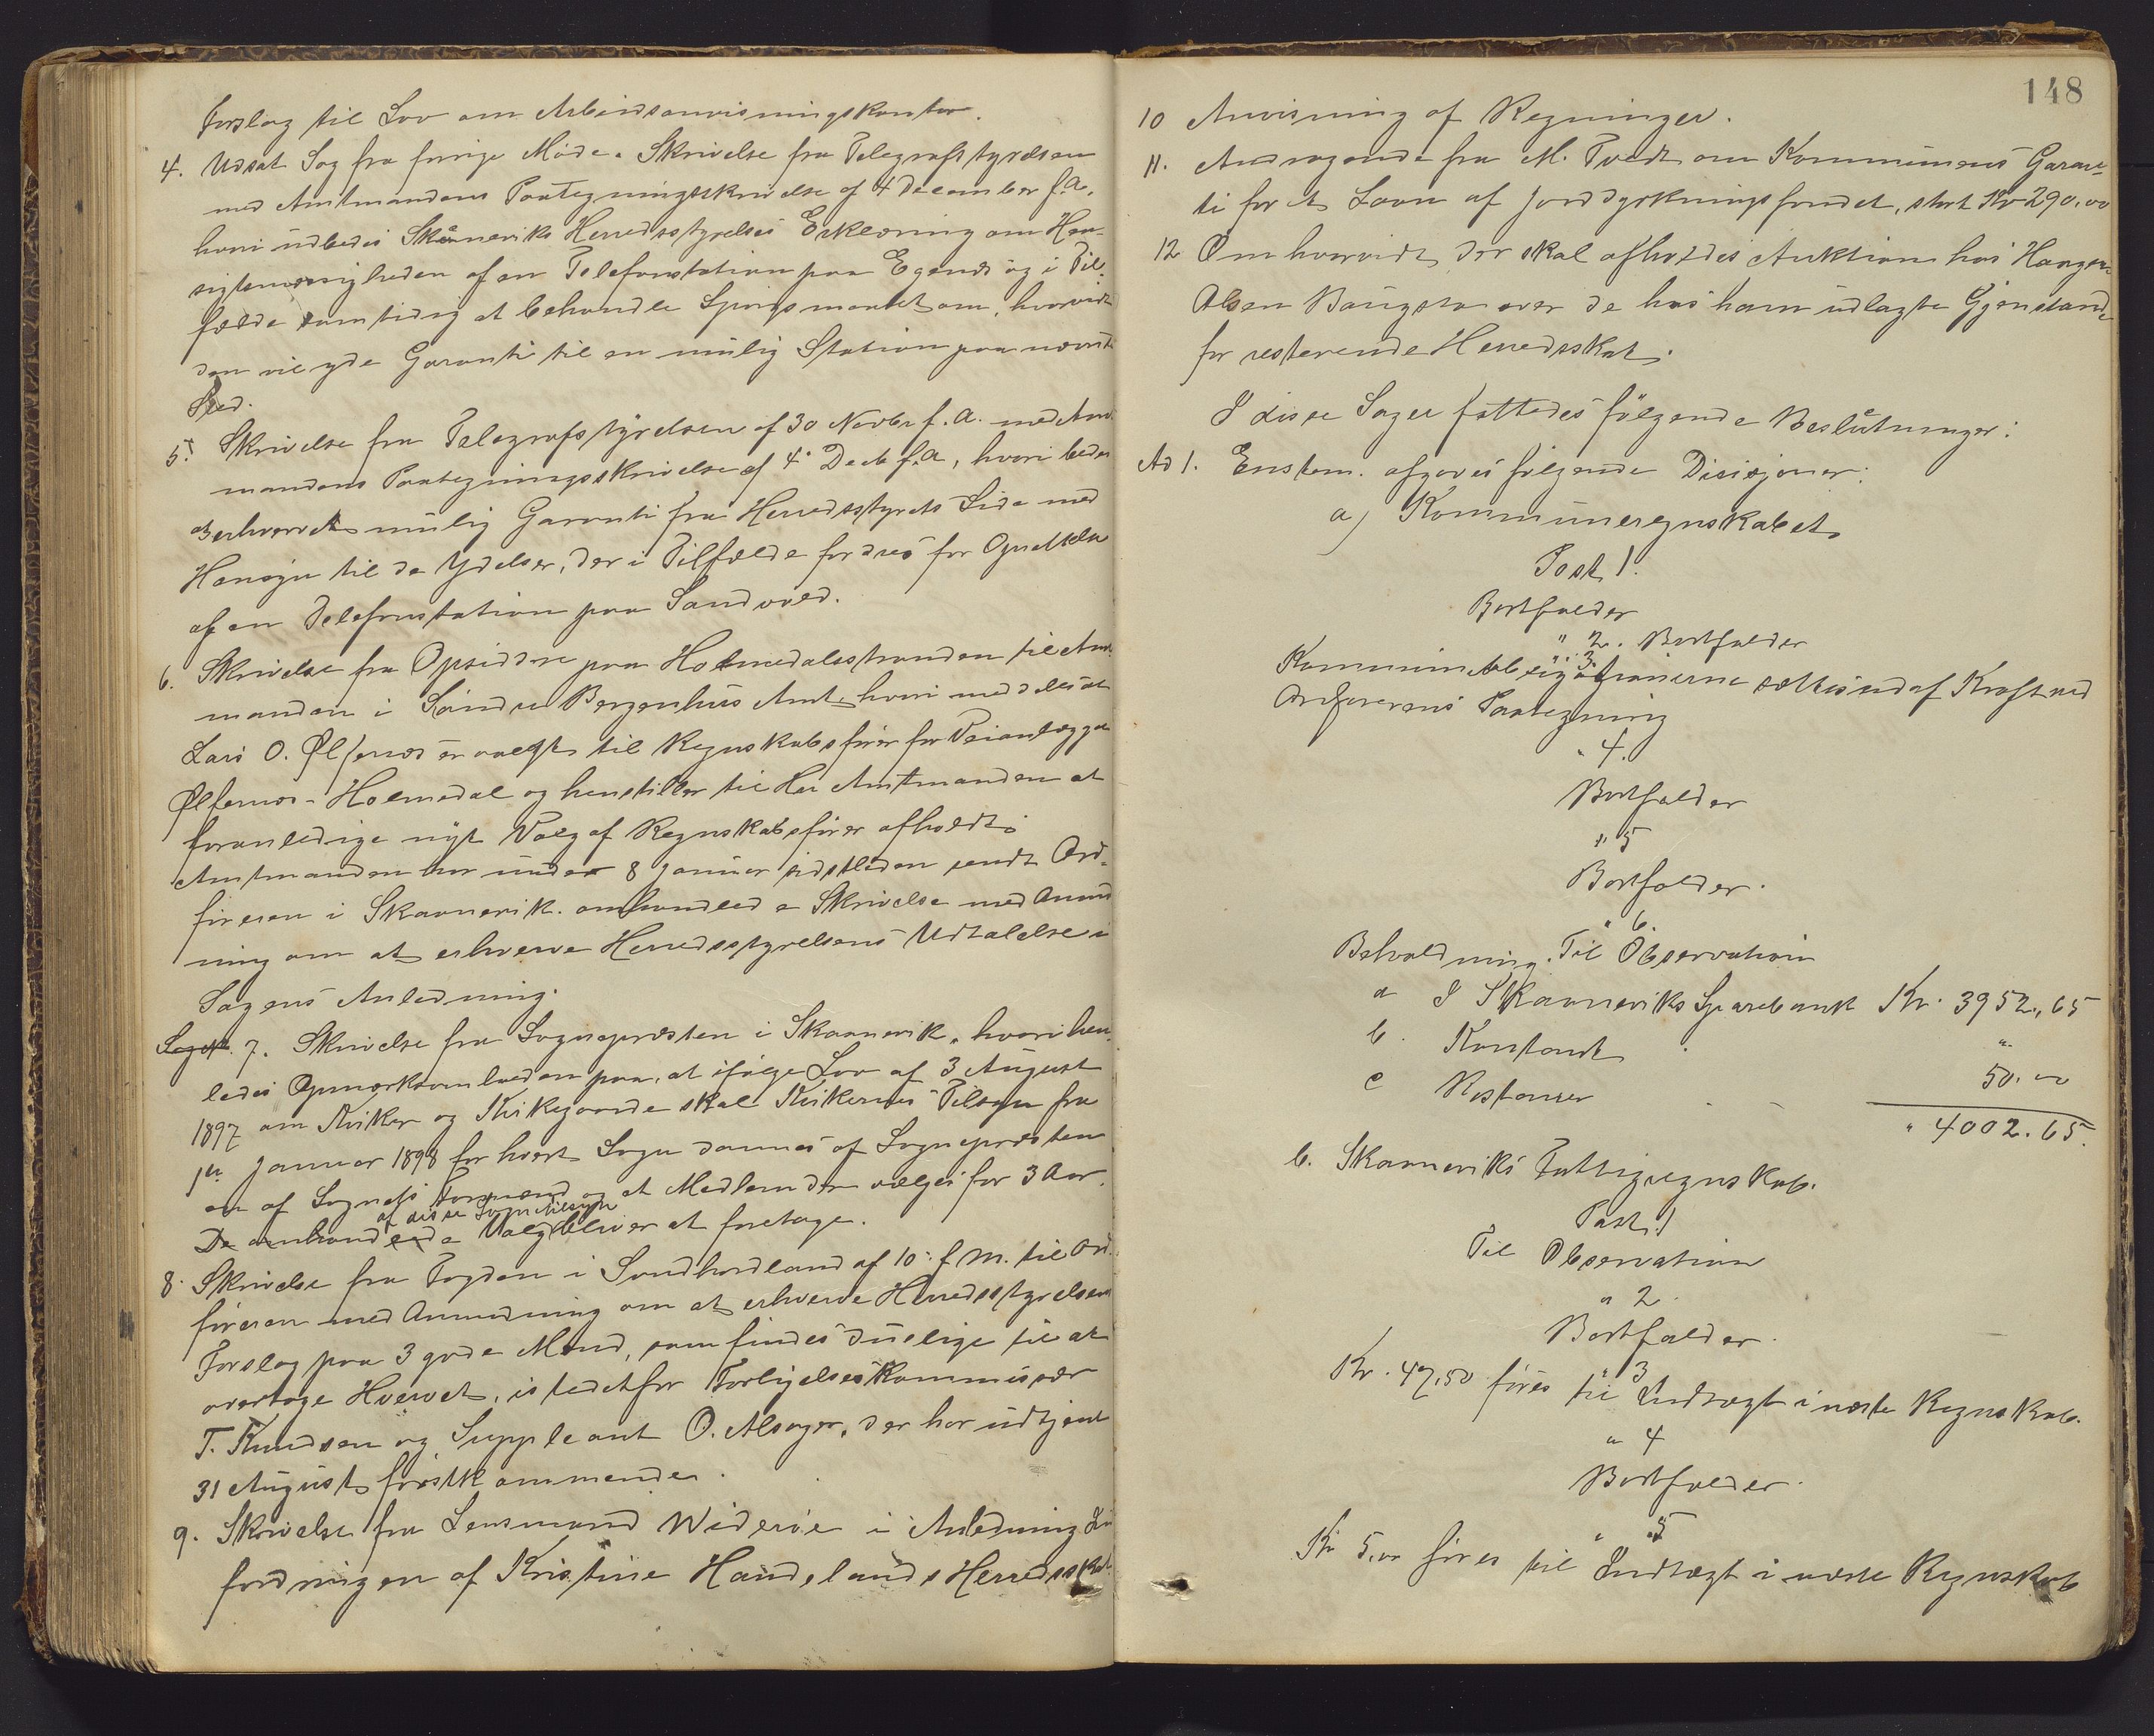 Forslag til Lov om Arbeidsanvisningskontor.
4. Udsat Sag fra forrige Møde. Skrivelse fra Telegrafstyrelsen
med Amtmandens Paategningsskrivelse af 4 December f.A.
hvori udbedes Skånevíks Herredsstyrelses Erklæring om Hen-
sigtsmæssigheden af en Telefonstation paa Egenes og i Til-
fælde samtidig at behandle Spørgsmaalet om, hvorvidt
den vil yde Garanti til en mulig Station paa nævnte
Sted.
5. Skrivelse fra Telegrafstyrelsen af 30 Novbr f.A. med Amt-
mandens Paategningsskrivelse af 4. Decb f.A, hvori bedes
erhvervet mulig Garanti fra Herredsstyrets Side med
Hensyn til de Ydelser, der i Tilfælde fordres for Oprettelse
af en Telefonstation paa Sandvold.
6. Skrivelse fra Opsiddere paa Holmedalsstranden til Amt-
manden i Søndre Bergenhus Amt, hvori meddeles at
Lars O. Ølfernes er valgt til Regnskabsfører for Veianlægget
Ølfernes-Holmedal og henstiller til Her Amtmanden at
foranledige nyt Valg af Regnskabsfører afholdt.
Amtmanden har under 8 Januar sidstleden sendt Ord-
føreren i Skaanevik omhandlede Skrivelse med Anmod
ning om at erhverve Herredsstyrelsens Udtalelse i
Sagens Anledning.
7. Skrivelse fra Sognepræsten i Skaanevik, hvori hen-
ledes Opmærksomheden paa, at ifølge Lov af 3 August
1897 om Kirker og Kirkegaarde skal Kirkernes Tilsyn fra
1ste Januar 1898 for hvert Sogn dannes af Sognepræsten
en af Sognets Formænd og et Medlem der vælges for 3 Aar.
af disse Sognetilsyn
De omhandlede Valg bliver at foretage.
8. Skrivelse fra Fogden i Søndhordland af 10. f.M. til Ord-
føreren med Anmodning om at erhverve Herredsstyrelsens
Forslag paa 3 gode Mænd, som findes duelige til at
overtage Hvervet, istedetfor Forligelseskommissær
T. Knudsen og Suppleant O. Alsager, der har udtjent
31 August førstkommende.
9. Skrivelse fra Lensmand Widerøe i Anledning In
fordringen af Kristine Haudelands Herredsskat.
148
10 Anvisning af Regninger.
11. Andragende fra M. Tvedt om Kommunens Garan-
ti for et Laan af Jorddyrkningsfondet, stort Kr 290,00
12 Om hvorvidt der skal afholdes Auktion hos Haagen
Olsen Baugstø over de hos ham udlagte Gjenstande
for resterende Herredsskat.
I disse Sager fattedes følgende Beslutninger:
Ad 1. Enstem. afgaves følgende Disisjoner:
a) Kommuneregnskabet
Post 1.
Bortfalder
" 2. Bortfalder
" 3.
Kommuneobligationerne sættes ud af Kraft ved
Ordførerens Paategning
" 4.
Bortfalder
" 5
Bortfalder.
" 6.
Beholdning. Til Observation
a I Skaaneviks Sparebank Kr. 3952,65
b. Kontant "
c Restanser 50.00
" 4002.65.
b. Skaaneviks Fattigregnskab.
Post 1
Til Observation
" 2
Bortfalder.
" 3
Kr. 47,50 føres til Indtægt i næste Regnskab.
" 4
Bortfalder.
" 5
Kr 5,00 føres til Indtægt i næste Regnskab